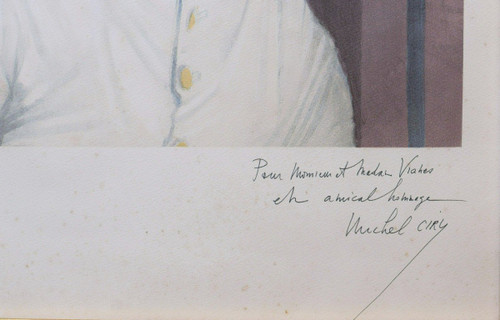 Pour Monsieur et Madame Viahes
en amical hommage
Michel CIRY